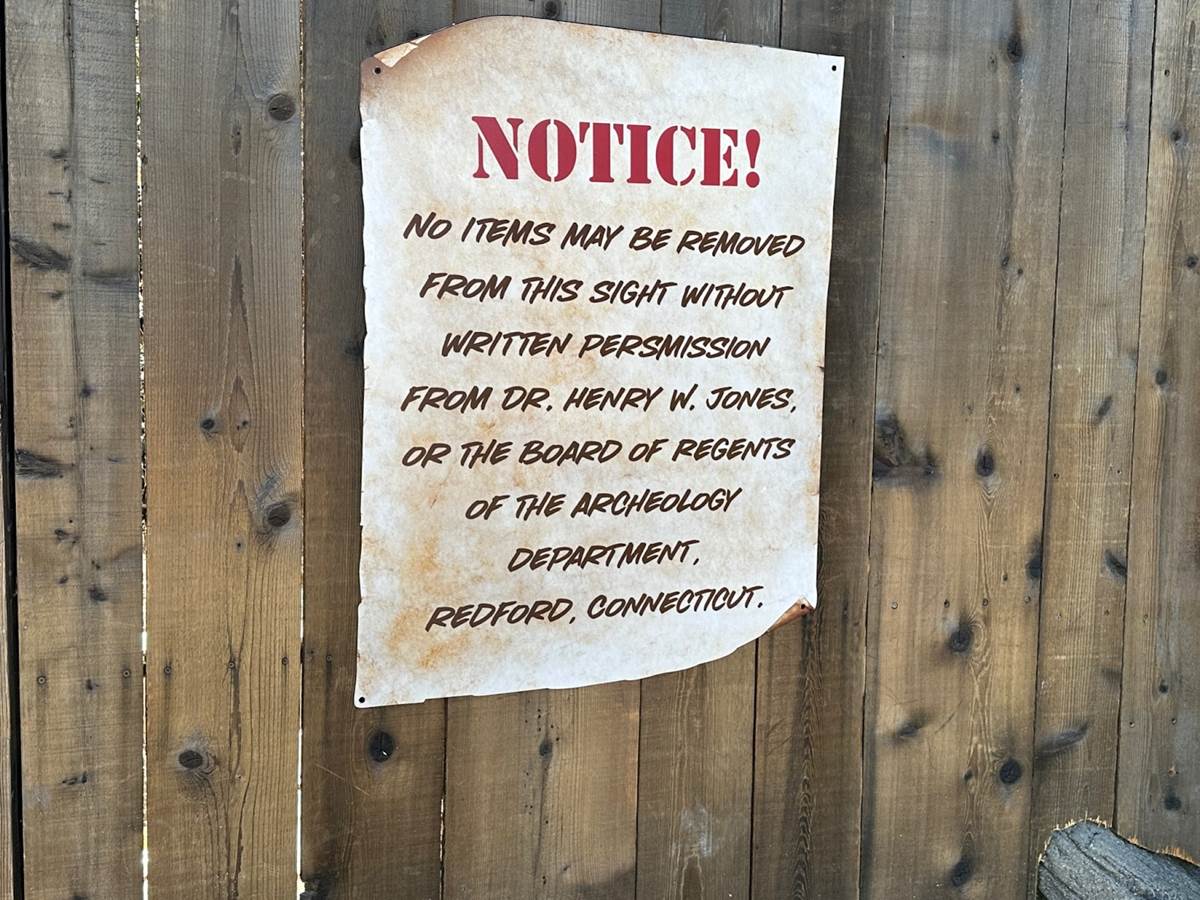 NOTICE!
NO ITEMS MAY BE REMOVED
FROM THIS SIGHT WITHOUT
WRITTEN PERSMISSION
FROM DR. HENRY W. JONES,
OR THE BOARD OF REGENTS
OF THE ARCHEOLOGY
DEPARTMENT,
REDFORD, CONNECTICUT.